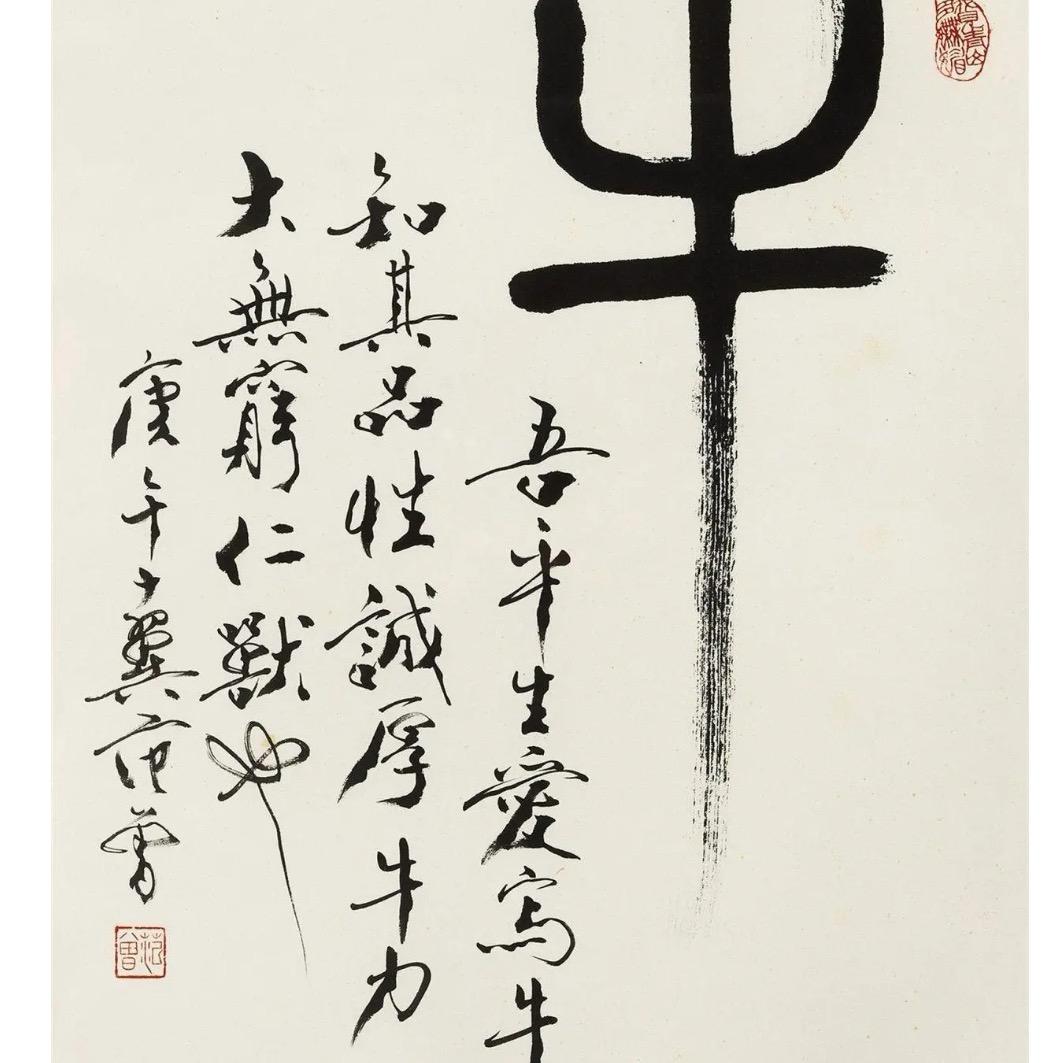 牛
吾平生愛寫牛
知其品性誠厚牛力
大無窮仁獸也
庚午十翼范曾
范曾